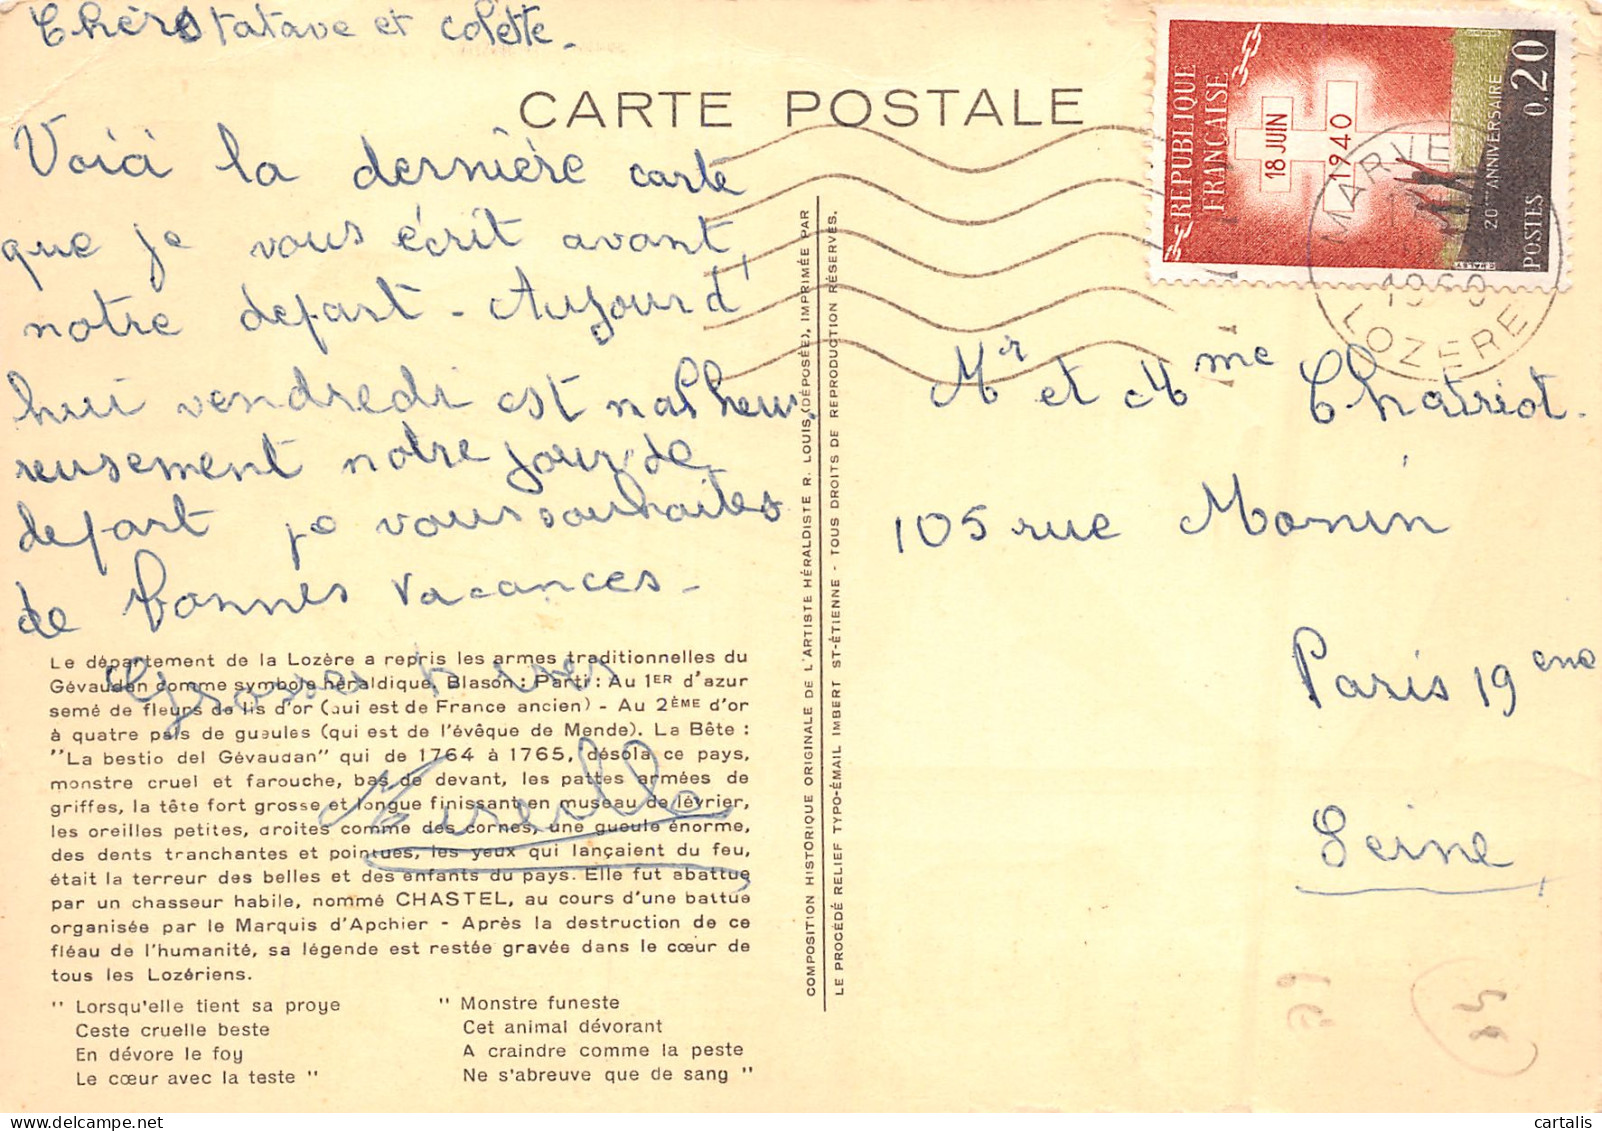 Chers tatave et colette.
CARTE POSTALE
Voici la dernière carte
que je vous écrit avant
notre depart - Aujourd'
hui vendredi est malheu-
reusement notre jour de
depart je vous souhaites
de bonnes vacances -
Grosses bises
Mireille
Le département de la Lozère a repris les armes traditionnelles du
Gévaudan comme symbole héraldique. Blason : Parti : Au 1ER d'azur
semé de fleurs de lis d'or (qui est de France ancien) - Au 2ÈME d'or
à quatre pals de gueules (qui est de l'évêque de Mende). La Bête :
"La bestio del Gévaudan" qui de 1764 à 1765, désola ce pays,
monstre cruel et farouche, bas de devant, les pattes armées de
griffes, la tête fort grosse et longue finissant en museau de lévrier,
les oreilles petites, droites comme des cornes, une gueule énorme,
des dents tranchantes et pointues, les yeux qui lançaient du feu,
était la terreur des belles et des enfants du pays. Elle fut abattue
par un chasseur habile, nommé CHASTEL, au cours d'une battue
organisée par le Marquis d'Apchier - Après la destruction de ce
fléau de l'humanité, sa légende est restée gravée dans le cœur de
tous les Lozériens.
" Lorsqu'elle tient sa proye
Ceste cruelle beste
En dévore le foy
Le cœur avec la teste "
" Monstre funeste
Cet animal dévorant
A craindre comme la peste
Ne s'abreuve que de sang "
COMPOSITION HISTORIQUE ORIGINALE DE L'ARTISTE HÉRALDISTE R. LOUIS (DÉPOSÉE), IMPRIMÉE PAR
LE PROCÉDÉ RELIEF TYPO-ÉMAIL IMBERT ST-ÉTIENNE - TOUS DROITS DE REPRODUCTION RÉSERVÉS.
RÉPUBLIQUE
FRANÇAISE
18 JUIN
1940
20ème ANNIVERSAIRE
POSTES 0.20
MARVE
1960
LOZERE
Mr et Mme Chatriot.
105 rue Monin
Paris 19eme
Seine
cartalis